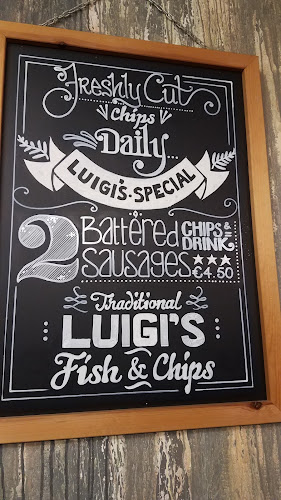 Freshly Cut
chips
Daily...
LUIGI'S · SPECIAL
2 Battered CHIPS & DRINK
Sausages €4.50
Traditional
LUIGI'S
Fish & Chips